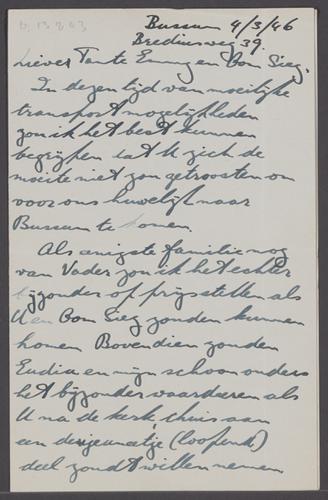 Bussum 4/3/46
Brediusweg 39.
Lieve Tante Emmy en Oom Sieg.
In dezen tijd van moeilijke
transport mogelijkheden
zou ik het best kunnen
begrijpen dat U zich de
moeite niet zou getroosten om
voor ons huwelijk naar
Bussum te komen.
Als eenigste familie nog
van Vader zou ik het echter
bijzonder op prijs stellen als
U en Oom Sieg zouden kunnen
komen Bovendien zouden
en mijn schoonouders
het bijzonder waardeeren als
U na de kerk, thuis aan
een dejeunertje (loopend)
deel zoudt willen nemen